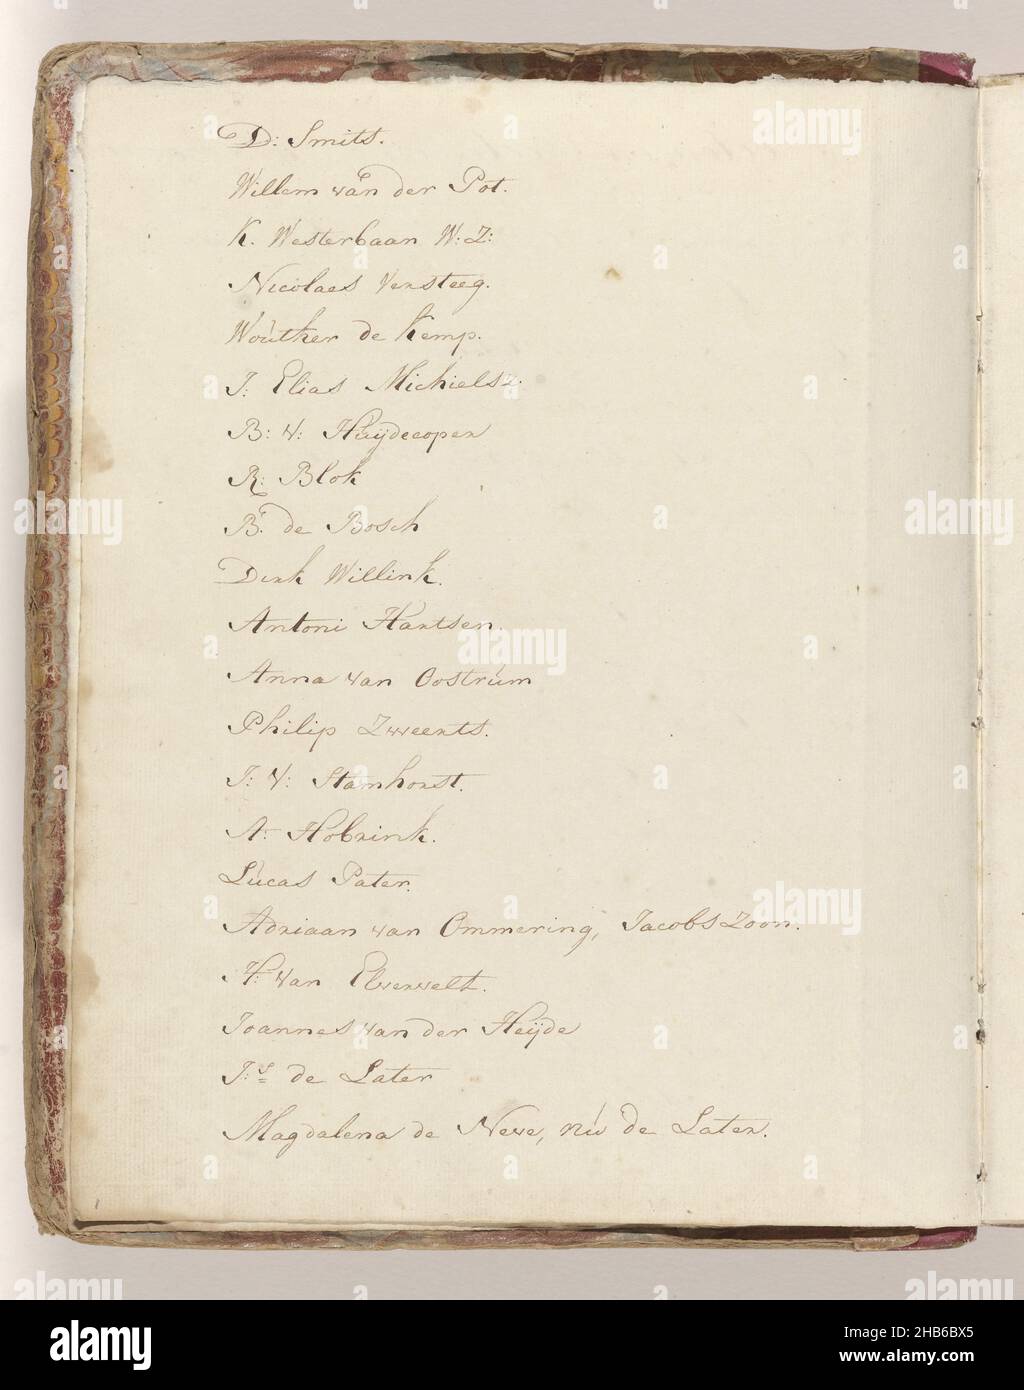 D: Smits.
Willem van der Pot.
K. Westerbaan W: Z:
Nicolaes Versteeg.
Wouther de Kemp.
J: Elias Michielsz.
B: V: Huijdecoper
R: Blok
B. de Bosch
Dirk Willink.
Antoni Hartsen.
Anna van Oostrum
Philip Zweerts.
J: V: Stamhorst.
A: Hobrink.
Lucas Pater.
Adriaan van Ommering, Jacobs Zoon.
H: van Elverwelt.
Joannes van der Heijde
J:s de Later
Magdalena de Neve, nu de Later.
1
alamy
Image ID: 2HB6BX5
www.alamy.com